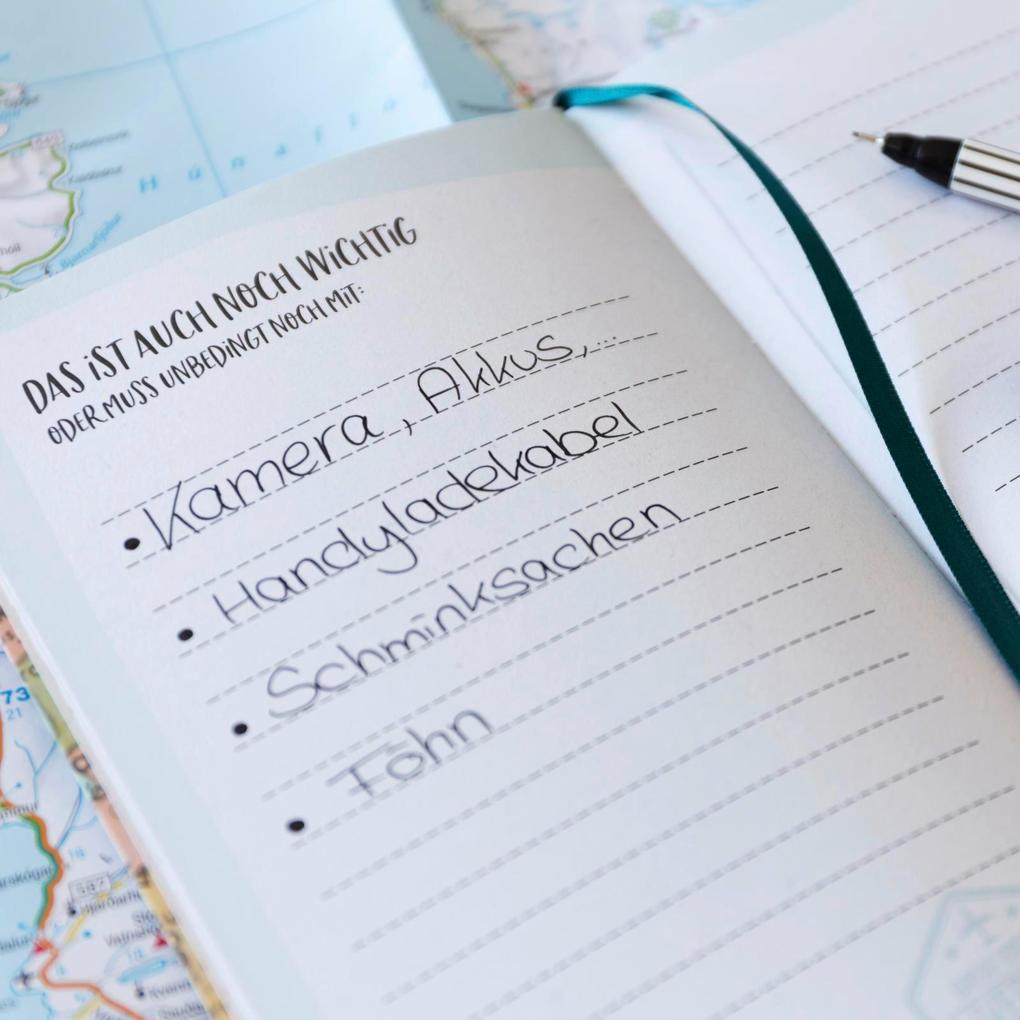 H ú n a f l
DAS iST AUCH NOCH WiCHTiG
ODER MUSS UNBEDiNGT NOCH MiT:
• Kamera, Akkus,...
• Handyladekabel
• Schminksachen
• Föhn
73
21
587